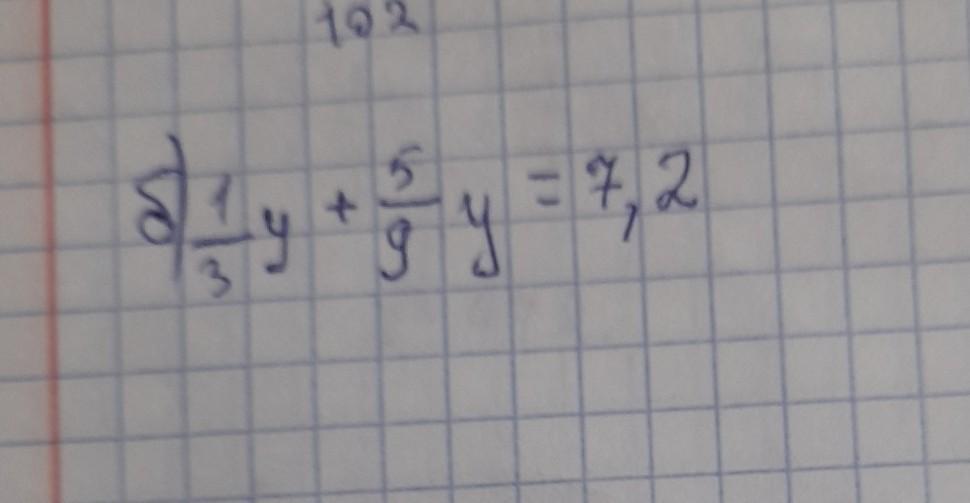 102
б) 1/3 y + 5/9 y = 7,2